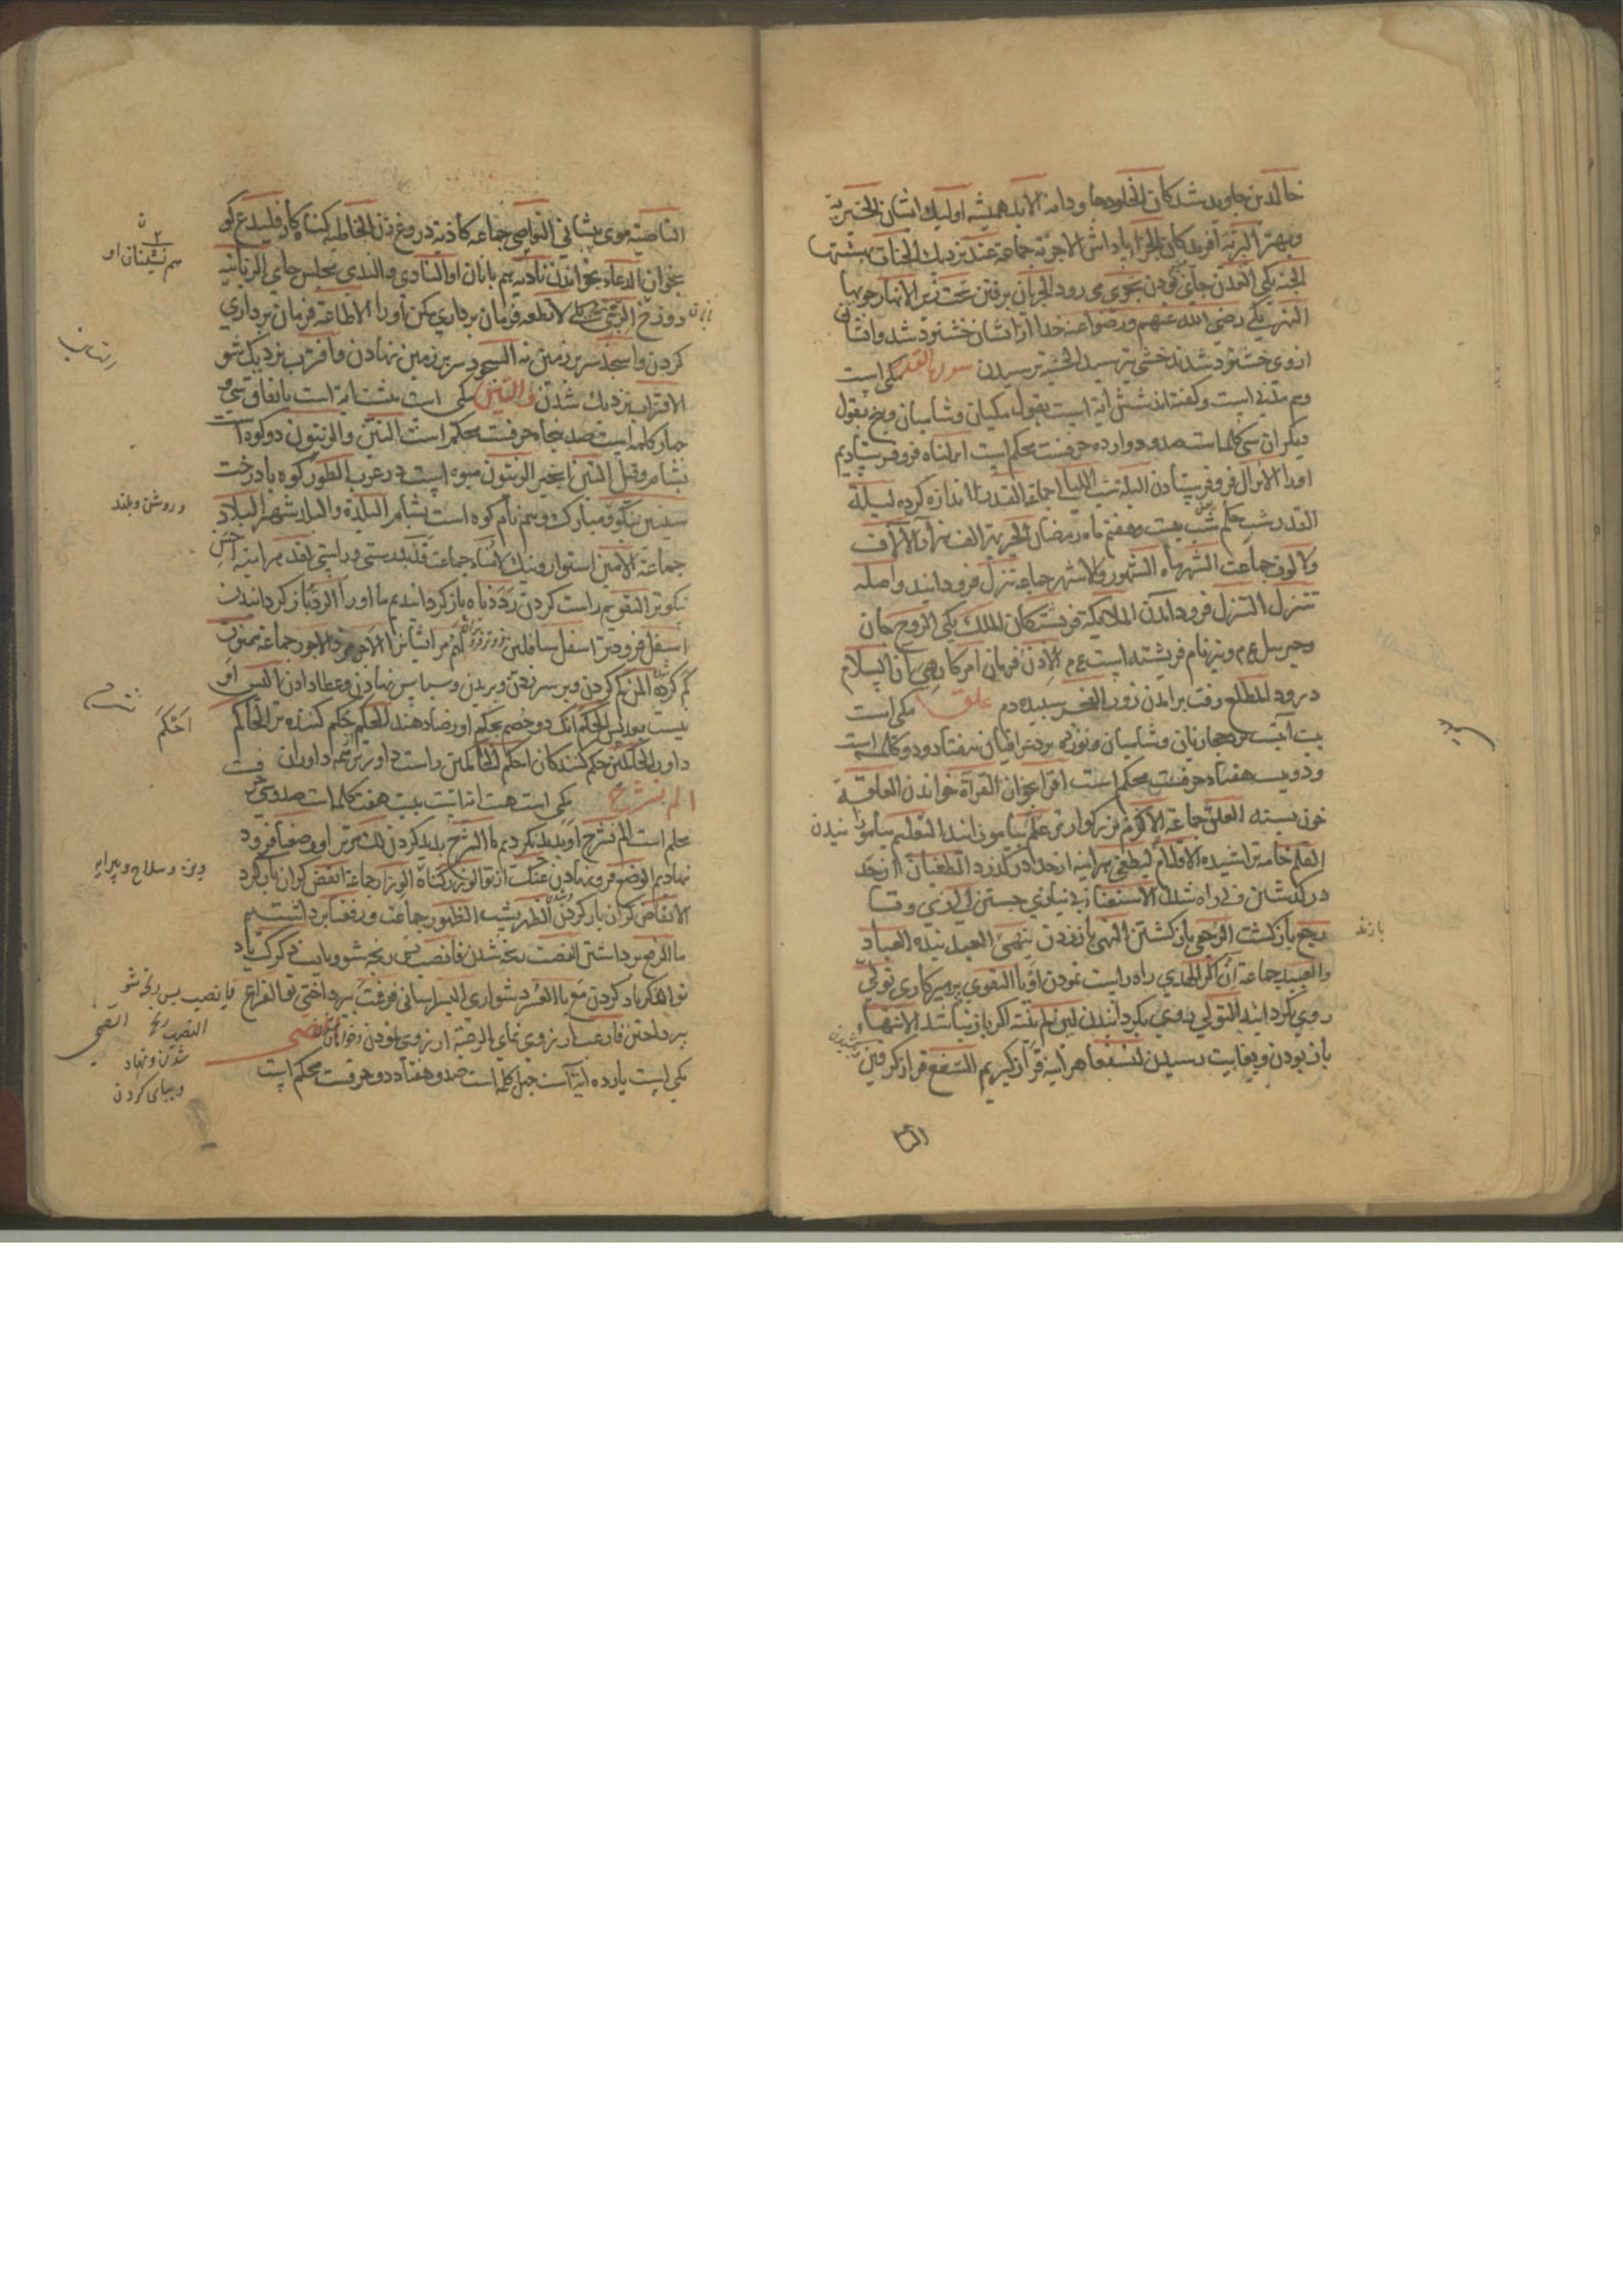 خالدین جاوید شدکان الخلود جاودانه الابد همیشه اولیك ایشان الخیر به
و بهتر البریة آفریدکان الجزا پاداش الاجزیة جماعة عند نزدیك الجنات بهشتها
الجنة یکی العدن جای بودن تجری می رود الجریان برفتن تحت زیر الانهار جویها
النهر یکی رضی الله عنهم ورضوا عنه خدا از ایشان خشنود شد و ایشان
از وی خشنود شدند خشی بترسید الخشیة ترسیدن سورة القدر مکی است
وهم مدنی است و کفته اند شش آیة است بقول مکیان و شامیان و پنج بقول
دیکران سی کلمه است صد و دوازده حرفست محکم است انزلناه فرو فرستادیم
اورا الانزال فرو فرستادن اللیلة شب اللیالی جماعة القدر اندازه کرده لیلة
القدر شب حکم شب بیست و هفتم ماه رمضان الخیر بهتر الف هزار الآلاف
والالوف جماعت الشهر ماه الشهور والاشهر جماعة تنزل فرود آیند واصله
تتنزل التنزل فرود آمدن الملایکة فریشتکان الملك یکی الروح جان
وجبریل ع م و نیز نام فریشته است ع م الاذن فرمان امر کار هی آن السلام
درود المطلع وقت برآمدن زور الفجر سپیده دم علق مکی است
بیست آیتست نزد حجازیان و شامیان و نوزده نزد عراقیان هفتاد و دو کلمه است
و دویست هفتاد حرفست محکم است اقرا بخوان القراة خواندن العلقة
خون بسته العلق جماعة الاکرم بزرکوارتر علم بیاموزانید التعلیم بیاموزانیدن
القلم خامه تراشیده الاقلام لیطغی هراینه از حد درکذرد الطغیان از حد
درکذشتن و بی راه شدن الاستغناء بی نیازی جستن
رجع بازکشت الرجعی بازکشتن النهی باززدن ینهی العبد بنده العباد
والعبید جماعة ان اکر الهدی راه راست نمودن او یا التقوی پرهیزکاری تولی
روی بکردانید التولی روی بکردانیدن لین لم ینته اکر باز نباشد الانتهاء
باز بودن و بغایت رسیدن لنسفعا هراینه فراز کیریم السفع فراز کرفتن
باززد
النا
الناصیة موی پیشانی النواصی جماعه کاذبة دروغ زن الخاطئة کناه کار فلیدع کو
بخوان الدعاء بخواندن نادیه هم بانان او النادی والندی مجلس جای الزبانیة
دوزخ الزبنی یکی لا تطعه فرمان برداری مکن اورا الاطاعة فرمان برداری
کردن واسجد سر بر زمین نه السجود سر بر زمین نهادن واقترب نزدیك شو
الاقتراب نزدیك شدن والتین مکی است هشت آیة است باتفاق سی و
چهار کلمه است صد پنجاه حرفست محکم است التین والزیتون دو کوه است
بشام وقیل التین انجیر الزیتون میوه است در عرب الطور کوه بادرخت
سینین نیکو و مبارك و هم نام کوه است بشام البلدة والبلد شهر البلاد
جماعة الامین استوار و نیك الامناء جماعت لقد بدرستی وراستی لقد هراینه احسن
نیکوتر التقویم راست کردن رددناه بازکردانیدیم ما اورا الرد بازکردانیدن
اسفل فروتر اسفل سافلین فروتر فروتران لهم مر ایشانرا الاجر مزد الاجور جماعة ممنون
کم کرده المن کم کردن و بر سر زدن و بریدن و سپاس نهادن و عطا دادن الیس او
نیست بعد پس الحکم انك دو خصم بحکم او رضا دهند الحکم حکم کننده تر الحاکم
داور الحاکمین حکم کنندکان احکم الحاکمین راست داورتر همه داوران
الم نشرح مکی است هشت آیتست بیست هفت کلمه است صد و سی حرفست
محکم است الم نشرح او پدید نکردیم ما الشرح پدید کردن لك مر ترا ووضعنا فرود
نهادیم الوضع فرو نهادن عنك از تو الوزر کناه الاوزار جماعة انقض کران بار کرد
الانقاض کران بار کردن الظهر پشت الظهور جماعت ورفعنا برداشتیم
ما الرفع برداشتن النصب رنجه شدن فانصب پس رنجه شو و باپ ذکرك یاد
تو الذکر یاد کردن مع با العسر دشواری الیسر اسانی فرغت پرداختی تو الفراغ
پرداختن فارغب آرزوی نمای الرغبة آرزوی نمودن و خواهانی والضحی
مکی است یازده آیة است چهل کلمه است صد و هفتاد دو حرفست محکم است
هم نشینان او
و روشن و بلند
احکم
وین و سلاح و پیرایه
فانصب پس رنجه شو
النصب رنجه
شدن و نهاد
و بپای کردن